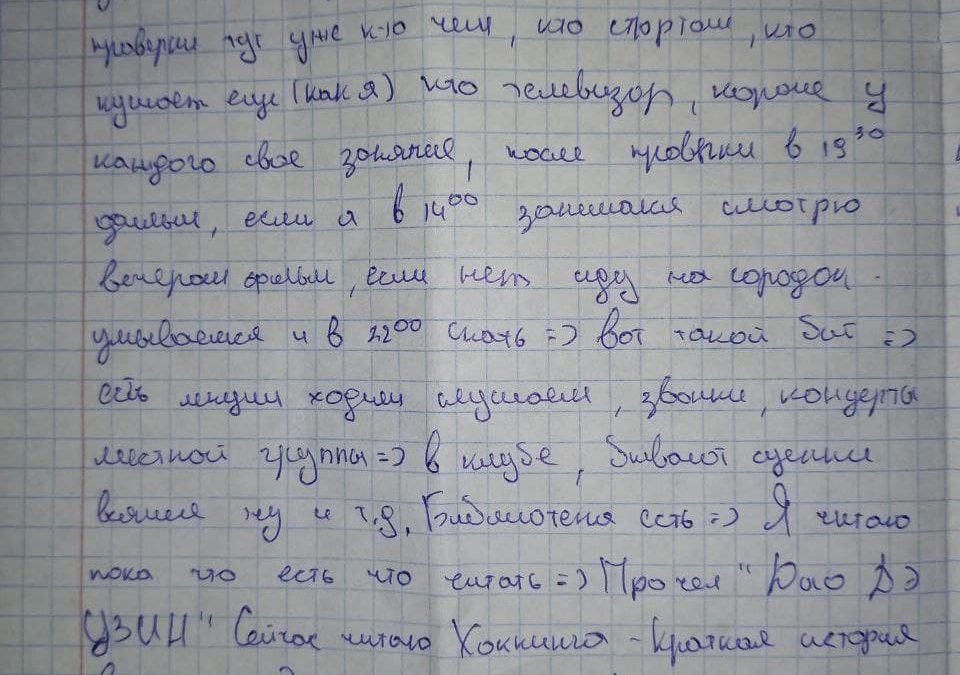 проверки тут уже к-то чем, кто спортом, кто
кушает еще (как я) кто телевизор, короче у
каждого свое занятие, после проверки в 19³⁰
дальше, если я в 14⁰⁰ занимался смотрю
вечером фильм, если нет иду на городок.
умываемся и в 22⁰⁰ спать => вот такой быт =>
есть лекции ходим слушаем, звонки, концерты
местной группы => в клубе, бывают сценки
всякие ну и т.д, Библиотека есть => Я читаю
пока что есть что читать => Прочел "Дао Дэ
ЦЗИН" Сейчас читаю Хоккинга - Краткая история